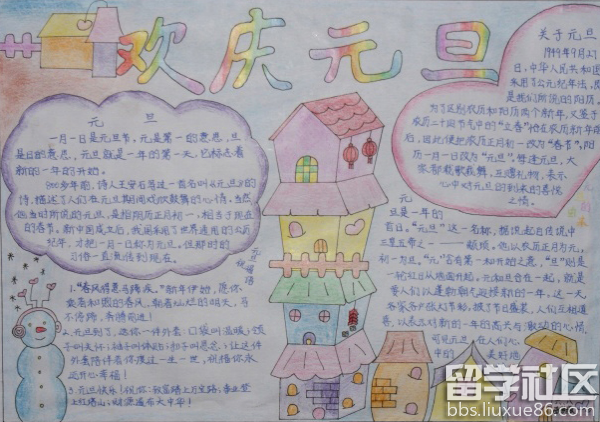 欢庆元旦
元 旦
一月一日是元旦节,元是第一的意思,旦
是日的意思,元旦就是一年的第一天,它标志着
新的一年的开始。
800多年前,诗人王安石写过一首名叫《元旦》的
诗,描述了人们在元旦期间
的心情。当然
他当时所说的元旦,是指阴历正月初一,相当于现在
的春节。新中国成立后,我国采用了世界通用的公历
纪年,才把一月一日称为元旦,但那时的
习俗一直流传到现在。
关于元旦
1949年9月27
日,中华人民共和国
采用了公元纪年法,
是我们所说的阳历。
为了区别农历和阳历两个新年,又鉴于
农历二十四节气中的“立春”恰在农历新年
后,因此便把农历正月初一改为“春节”,阳
历一月一日改为“元旦”。每逢元旦,大
家都载歌载舞,互赠礼物,表示
心中对元旦的到来的喜悦
之情。
元
旦是一年的
首日。“元旦”这一名称,据说起自传说中
三皇五帝之一——颛顼,他以农历正月为元,
初一为旦。“元”含有第一和开始之意,“旦”则是
一轮红日从地面升起,元和旦合在一起,就是
要人们以蓬勃朝气迎接新的一年,这一天,
元旦祝福语
1.“春风得意马蹄疾。”新年伊始,愿你
乘着和煦的春风,朝着灿烂的明天,马
不停蹄,奔腾前进!
2.元旦到了,送你一件外套:口袋叫温暖;领
子叫关怀;袖子叫体贴;扣子叫思念;让这件
外套陪伴着你度过一生一世,祝福你永
远开心幸福!
3.元旦快乐!祝你:致富踏上万宝路,事业登
上红塔山;财源遍布大中华!
留学社区
bbs.liuxue86.com